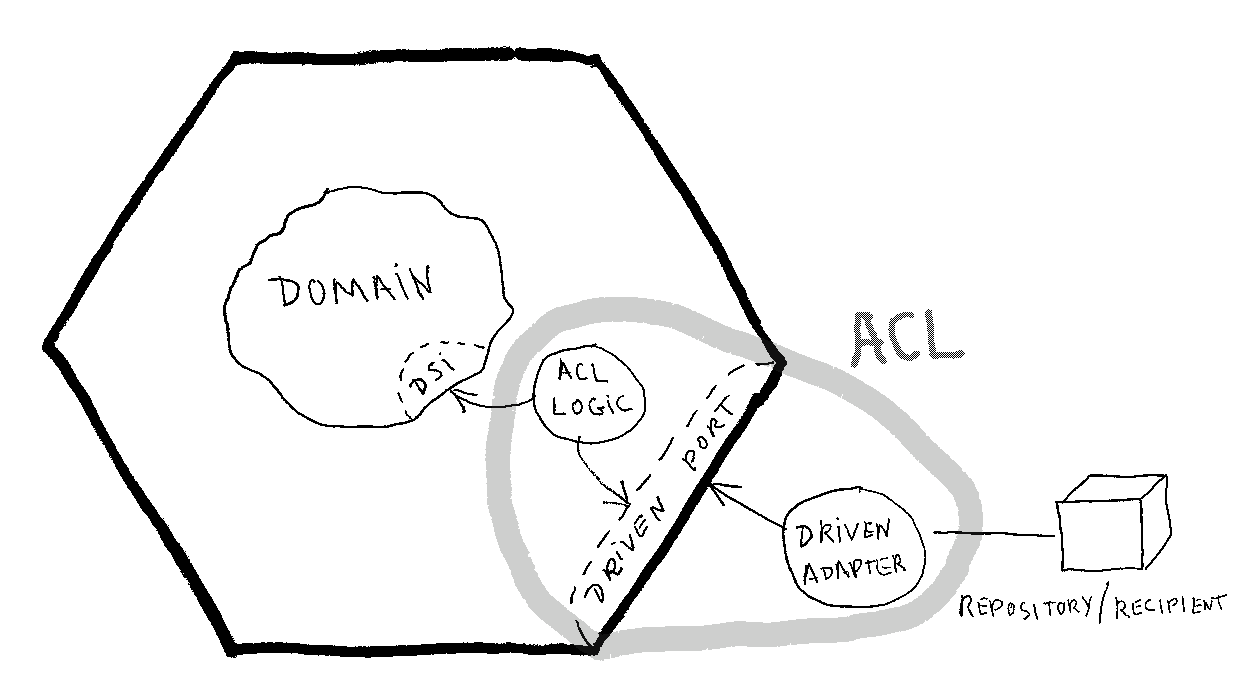 DOMAiN
DSi
ACL
LOGiC
ACL
DRiVEN PORT
DRiVEN
ADAPTER
REPOSITORY/RECIPIENT